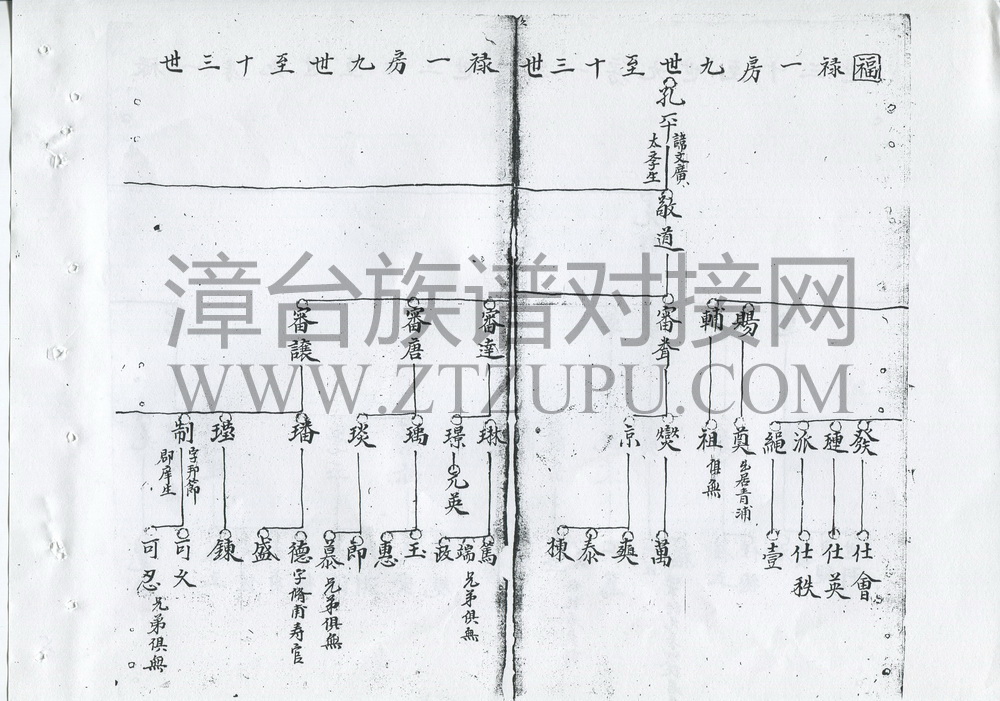 福 禄一房九世至十三世
孔平
諱文廣
太孝生
敬道
賜
輔
審
奠
生居青浦
祖
俱無
發
派
繩
仕會
仕英
仕秩
壹
燮
京
萬
爽
泰
揀
禄一房九世至十三世
審達
審唐
審讓
琳
璟
兄英
瑀
琰
璠
瑆
制
字邦節
郡庠生
篤
端
兄弟俱無
玉
惠
即
慕
兄弟俱無
德
字脩甫寿官
盛
鍊
可久
可忍
兄弟俱無
漳台族谱对接网
WWW.ZTZUPU.COM